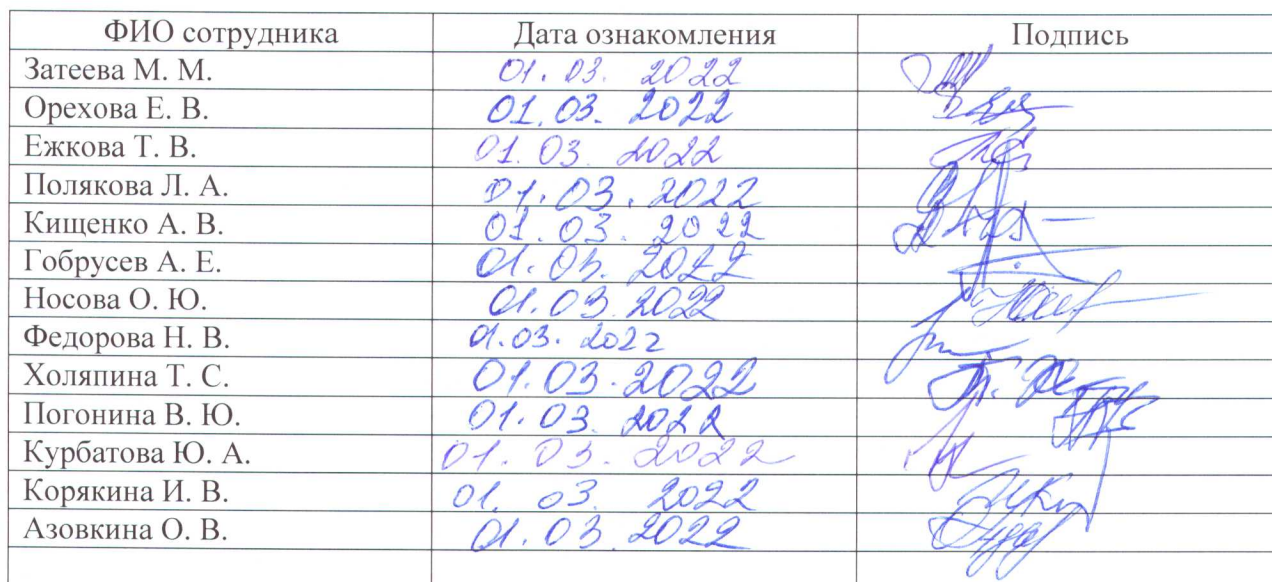 ФИО сотрудника Дата ознакомления Подпись
Затеева М. М. 01. 03. 2022
Орехова Е. В. 01.03. 2022
Ежкова Т. В. 01.03. 2022
Полякова Л. А. 01.03.2022
Кищенко А. В. 01.03.2022
Гобрусев А. Е. 01.03.2022
Носова О. Ю. 01.03.2022
Федорова Н. В. 01.03.2022
Холяпина Т. С. 01.03.2022
Погонина В. Ю. 01.03.2022
Курбатова Ю. А. 01.03.2022
Корякина И. В. 01. 03. 2022
Азовкина О. В. 01.03.2022